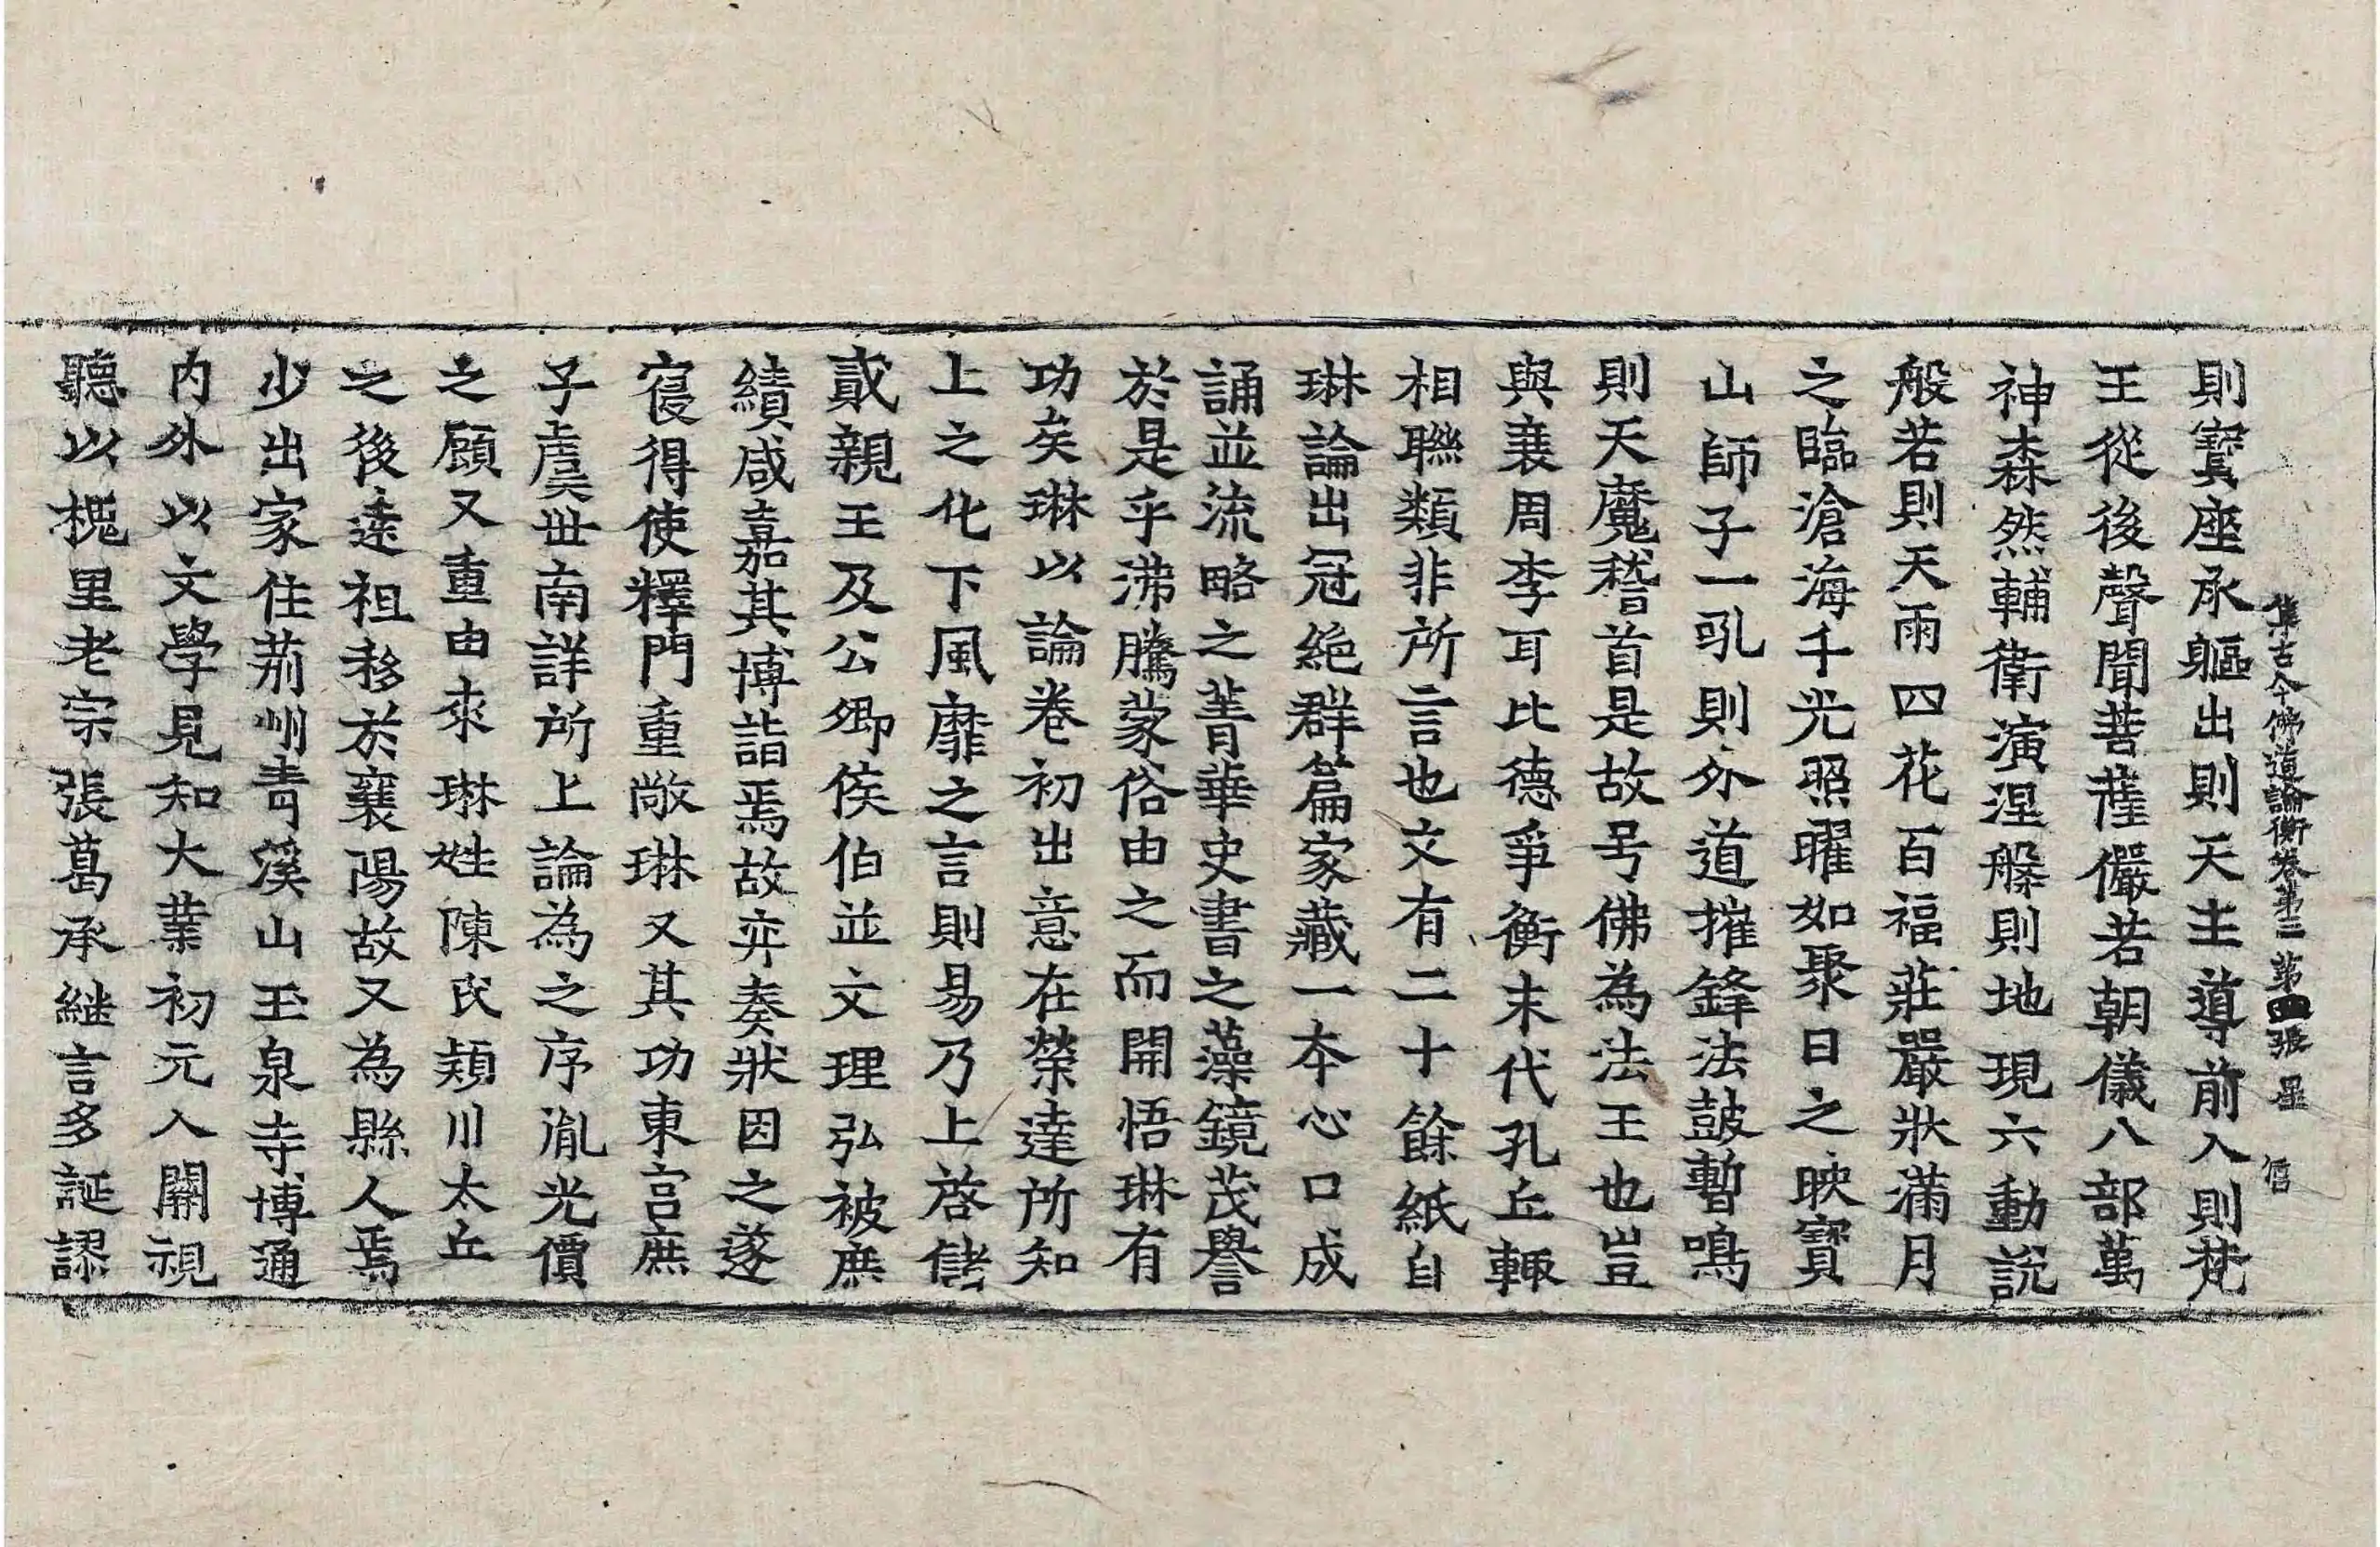 集古今佛道論衡卷第三 第四張 星 信
則寶座承軀出則天主導前入則梵
王從後聲聞菩薩儼若朝儀八部萬
神森然輔衛演涅槃則地現六動說
般若則天雨四花百福莊嚴狀滿月
之臨滄海千光照曜如聚日之映寶
山師子一吼則外道摧鋒法鼓暫鳴
則天魔稽首是故号佛為法王也豈
與衰周李耳比德爭衡末代孔丘輙
相聯類非所言也文有二十餘紙自
琳論出冠絕群篇家藏一本心口成
誦並流略之菁華史書之藻鏡茂譽
於是乎沸騰蒙俗由之而開悟琳有
功矣琳以論卷初出意在榮達所知
上之化下風靡之言則易乃上啓儲
貳親王及公卿侯伯並文理弘被庶
績咸嘉其博詣焉故弈奏狀因之遂
寢得使釋門重敞琳又其功東宮庶
子虞世南詳所上論為之序胤光價
之顧又重由來琳姓陳氏潁川太丘
之後遠祖移於襄陽故又為縣人焉
少出家住荊州青溪山玉泉寺博通
內外以文學見知大業初元入關視
聽以槐里老宗張葛承継言多誕謬